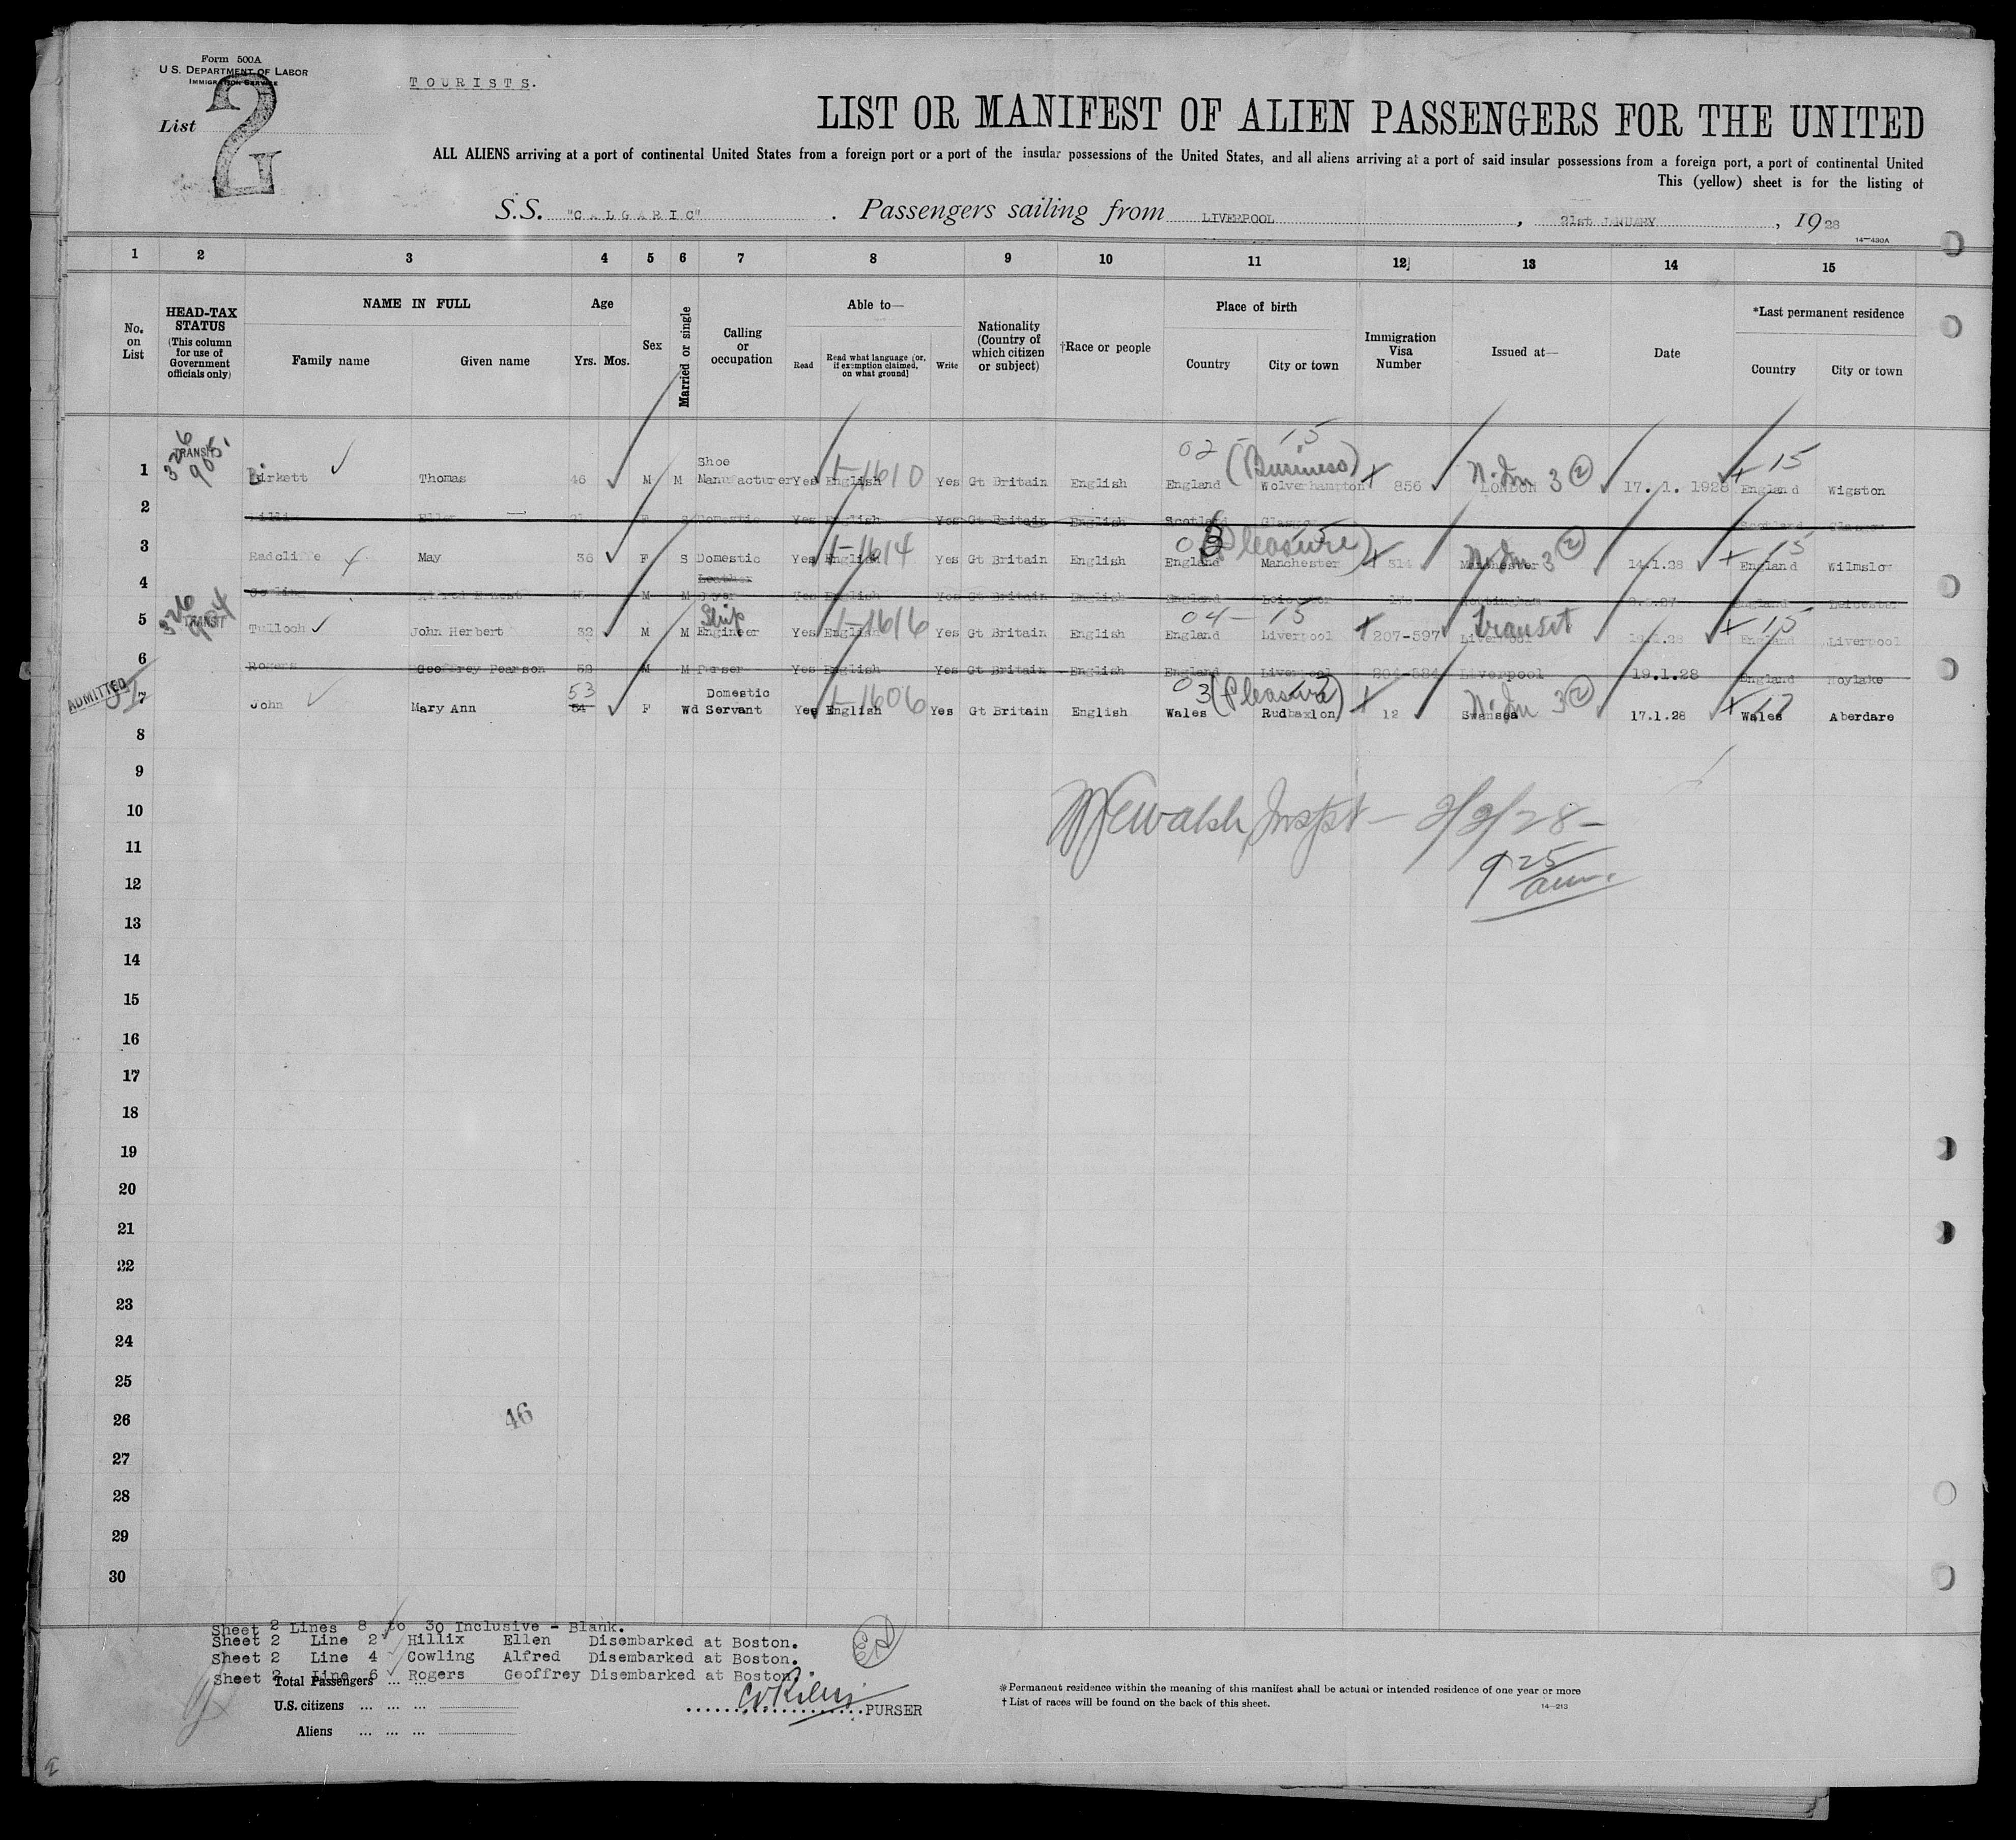 Form 500A
U.S. DEPARTMENT OF LABOR
IMMIGRATION SERVICE
TOURISTS.
List 2
LIST OR MANIFEST OF ALIEN PASSENGERS FOR THE UNITED
ALL ALIENS arriving at a port of continental United States from a foreign port or a port of the insular possessions of the United States, and all aliens arriving at a port of said insular possessions from a foreign port, a port of continental United
This (yellow) sheet is for the listing of
S.S. "CALGARIC" . Passengers sailing from LIVERPOOL , 21st JANUARY , 1928
14—430A
1 2 3 4 5 6 7 8 9 10 11 12 13 14 15
No. on List
HEAD-TAX STATUS (This column for use of Government officials only)
NAME IN FULL
Family name Given name
Age
Yrs. Mos.
Sex
Married or single
Calling or occupation
Able to—
Read
Read what language [or, if exemption claimed, on what ground]
Write
Nationality (Country of which citizen or subject)
†Race or people
Place of birth
Country City or town
Immigration Visa Number
Issued at—
Date
*Last permanent residence
Country City or town
02 - 15
326 905. TRANSIT (Business) 15
1 Birkett Thomas 46 M M Shoe Manufacturer Yes English 1-1610 Yes Gt Britain English England Wolverhampton 856 LONDON 3 2 17.1.1928 England Wigston
2 Domestic Yes English Yes Gt Britain English Scotland Scotland
03 (Pleasure) 15
3 Radcliffe May 36 F S Domestic Yes English 1-1614 Yes Gt Britain English England Manchester 514 Manchester 3 2 14.1.28 England 15 Wilmslow
4 Cowling Alfred Ernest M M Leather Yes English Yes Gt Britain English England Leicester England Leicester
326 904 TRANSIT 04 - 15
5 Tulloch John Herbert 32 M M Ship Engineer Yes English 1-1616 Yes Gt Britain English England Liverpool 207-597 Liverpool Transit England 15 Liverpool
6 Rogers Geoffrey Pearson 52 M M Purser Yes English Yes Gt Britain English England Liverpool 204-584 Liverpool 19.1.28 England Hoylake
ADMITTED 03 (Pleasure)
7 John Mary Ann 53 54 F Wd Domestic Servant Yes English 1-1606 Yes Gt Britain English Wales Rudbaxlon 12 Swansea 3 2 17.1.28 Wales 17 Aberdare
8
9
10
Walsh, Inspt - 2/2/28 -
11
9 25 am.
12
13
14
15
16
17
18
19
20
21
22
23
24
25
26
46
27
28
29
30
Sheet 2 Lines 8 to 30 Inclusive - Blank.
Sheet 2 Line 2 Hillix Ellen Disembarked at Boston.
Sheet 2 Line 4 Cowling Alfred Disembarked at Boston.
Sheet 2 Line 6 Rogers Geoffrey Disembarked at Boston.
Total Passengers ... ...
U.S. citizens ... ... ...
Aliens ... ... ...
PURSER
*Permanent residence within the meaning of this manifest shall be actual or intended residence of one year or more
† List of races will be found on the back of this sheet.
14—213
2